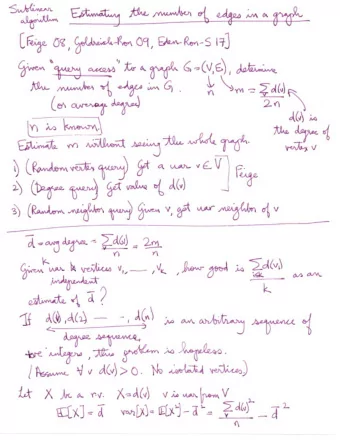 Sublinear algorithm Estimating the number of edges in a graph
[Feige 08, Goldreich-Ron 09, Eden-Ron-S 17]
Given "query access" to a graph G=(V,E), determine
the number of edges in G. n m = Σd(v) / 2n
(or average degree)
d(v) is the degree of vertex v
n is known
Estimate m without seeing the whole graph
1) (Random vertex query) Get a uar v∈V
2) (Degree query) Get value of d(v)
Feige
3) (Random neighbor query) Given v, get uar neighbor of v
d̄ = avg degree = Σd(v) / n = 2m / n
Given uar k vertices v₁, ––, vₖ, how good is Σd(vᵢ) / k as an
independent
estimate of d̄ ?
If d(1), d(2) –– –, d(n) is an arbitrary sequence of
degree sequence
+ve integers, this problem is hopeless.
(Assume ∀ v d(v)>0. No isolated vertices)
Let X be a rv. X=d(v) v is uar from V
E[X] = d̄ var[X] = E[X²] – d̄² = Σd(v)² / n – d̄²